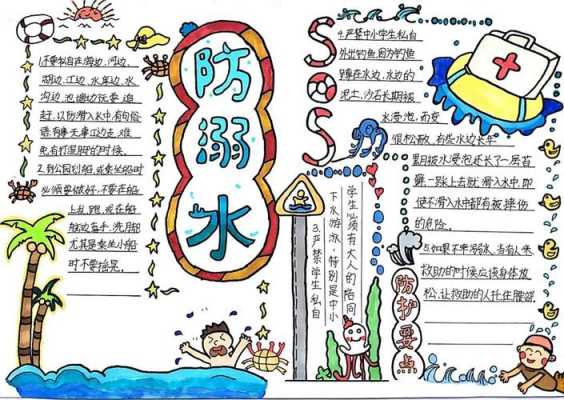 防溺水
1.不要私自在海边、河边、
湖边、江边、水库边、水
沟边、池塘边玩耍、追
赶,以防滑入水中有句俗
语:有事无事江边走,难
免有打湿脚的时候。
2.到公园划船,或乘坐船时
必须要做好,不要在船
上乱跑,或在船
舷边洗手、洗脚
尤其是乘坐小船
时不要摇晃。
3.严禁学生私自
下水游泳,特别是中小
学生必须有大人的陪同
SOS
4.严禁中小学生私自
外出钓鱼因为钓鱼
蹲在水边,水边的
泥土,沙石长期被
水浸泡,而变
很松散,有些水边长年
累月被水浸泡还长了一层苔
藓,一踩上去就滑入水中,即
使不滑入水中都有被摔伤
的危险。
防护要点
5.如果不幸溺水,当有人来
救助的时候应该身体放
松,让救助的人托住腰部